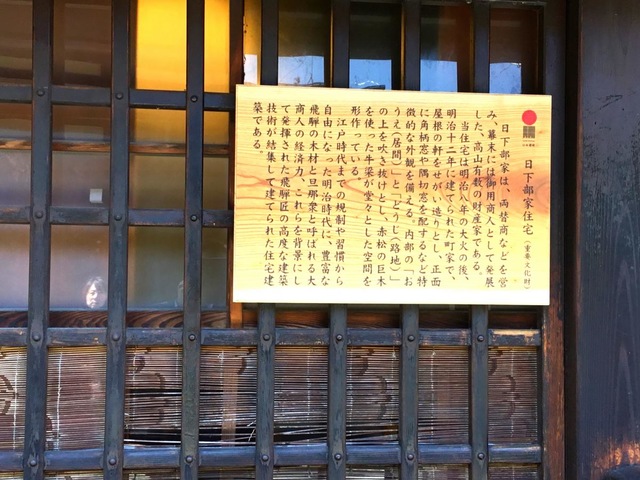 日下部家住宅(重要文化財)
日下部家は、両替商などを営
み、幕末には御用商人として発展
した、高山有数の財産家である。
当住宅は明治八年の大火の後、
明治十二年に建てられた町家で、
屋根の軒をせがい造りとし、正面
に角柄窓や隅切窓を配するなど特
徴的な外観を備える。内部の「お
うえ(居間)」と「どうじ(路地)」
の上を吹き抜けとし、赤松の巨木
を使った牛梁が堂々とした空間を
形作っている。
江戸時代までの規制や習慣から
自由になった明治時代に、豊富な
飛騨の木材と旦那衆と呼ばれる大
商人の経済力、これらを背景にし
て発揮された飛騨匠の高度な建築
技術が結集して建てられた住宅建
築である。